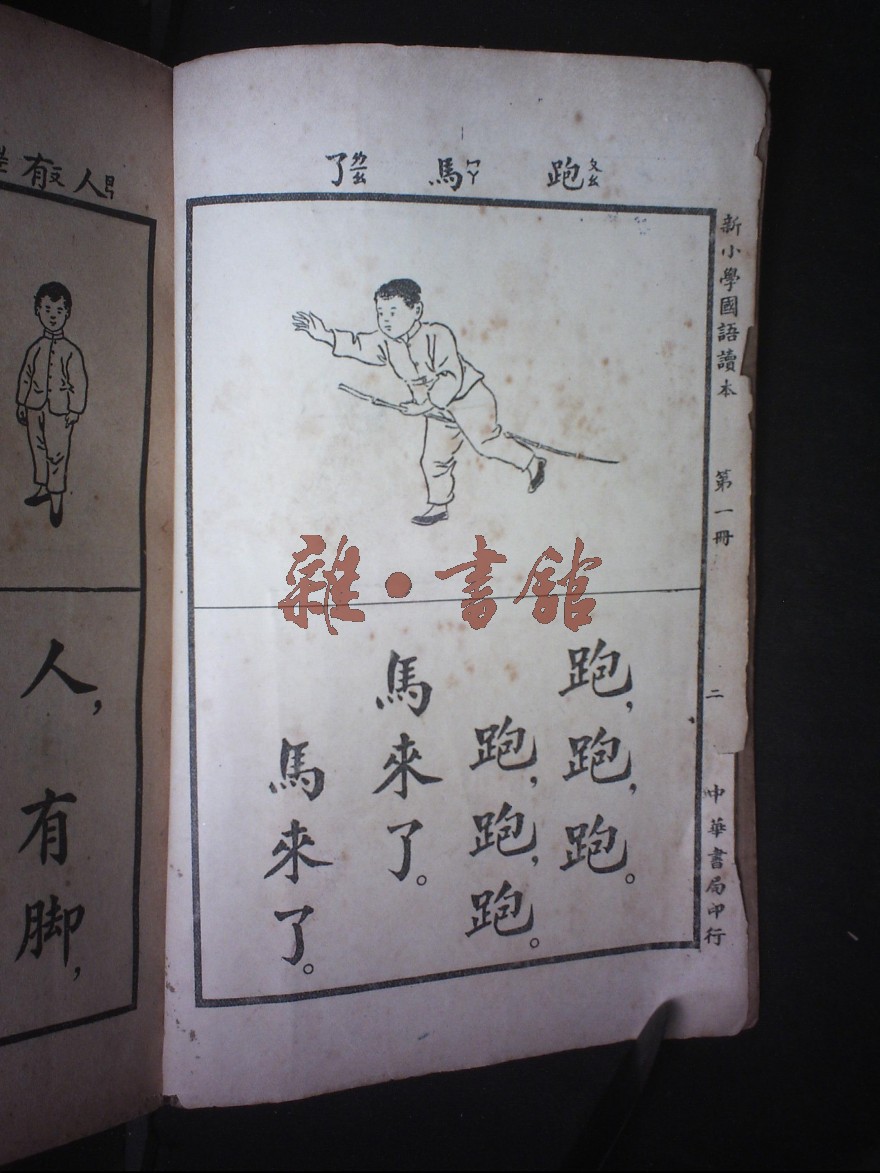 新小學國語讀本 第一冊 二 中華書局印行
跑ㄆㄠ 馬ㄇㄚ 了ㄌㄧㄠ
跑,跑,跑。
跑,跑,跑。
馬來了。
馬來了。
雜·書館
人ㄖㄣ 有ㄧㄡ
人,有脚,